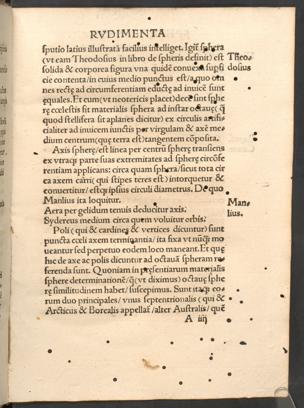 RVDIMENTA
sputio latius illustratā facilius intelliget. Igit̃ sphera
(vt eam Theodosius in libro de spheris definit) est
Theo-
dosius
solida & corporea figura vna quidē conuexa supfi
cie contenta/in cuius medio punctus est/a quo om
nes rectę ad circumferentiam eductę ad inuicē sunt
equales. Et cum (vt neotericis placet) decē sint sphe
rę cœlestis
sit materialis sphera ad instar octauę (
quod stellifera sit aplanes dicitur) ex circulis artifi
cialiter ad inuicem iunctis per virgulam & axē me
dium centrum (quę terra est) tangentem cōposita.
Axis spherę/est linea per centrū spherę transiens
ex vtraq; parte suas extremitates ad spherę circūfe
rentiam applicans: circa quam sphera/sicut rota cir
ca axem carri (qui stipes teres est) intorquetur &
conuertitur/estq; ipsius circuli diametrus. De quo
Manlius ita loquitur.
Man
lius.
Aera per gelidum tenuis deducitur axis.
Sydereus medium circa quem voluitur orbis.
Poli (qui & cardines & vertices dicuntur) sunt
puncta cœli axem terminantia/ita fixa vt nūq̃ mo
ueantur sed perpetuo eodem loco maneant. Et quę
hic de axe ac polis dicuntur ad octauā spheram re
ferenda sunt. Quoniam in pręsentiarum materialis
spherę determinationē/q̃ (vt diximus) octauę sphe
rę similitudinem habet/suscepimus. Sunt itaq; eo-
rum duo principales/vnus septentrionalis (qui &
Arcticus & Borealis appellat̃/alter Australis/quē
A iiij